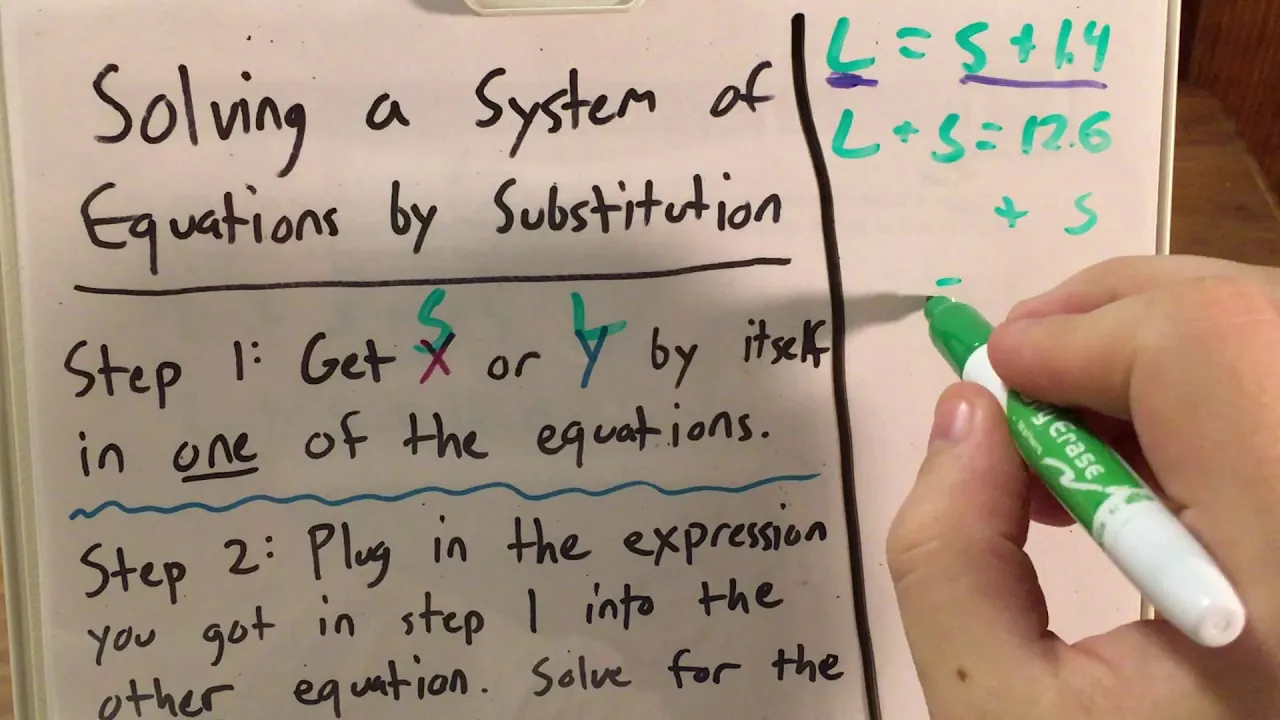 Solving a System of
Equations by Substitution
Step 1: Get x or y by itself
S L
in one of the equations.
Step 2: Plug in the expression
you got in step 1 into the
other equation. Solve for the
L = S + 1.4
L + S = 12.6
+ S
=
Dry Erase